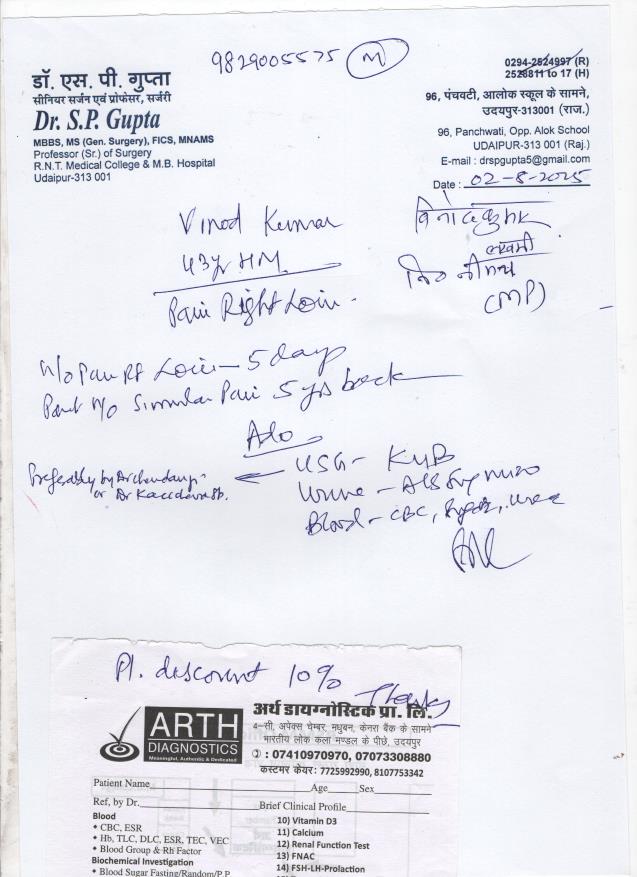 9829005575 (M)
डॉ. एस. पी. गुप्ता
सीनियर सर्जन एवं प्रोफेसर, सर्जरी
Dr. S.P. Gupta
MBBS, MS (Gen. Surgery), FICS, MNAMS
Professor (Sr.) of Surgery
R.N.T. Medical College & M.B. Hospital
Udaipur-313 001
0294-2524997 (R)
2528811 to 17 (H)
96, पंचवटी, आलोक स्कूल के सामने,
उदयपुर-313001 (राज.)
96, Panchwati, Opp. Alok School
UDAIPUR-313 001 (Raj.)
E-mail : drspgupta5@gmail.com
Date : 02-8-2025
Vinod Kumar
43yr HM
Pain Right Loin -
(MP)
H/o Pain Rt Loin - 5 days
Past H/o Similar Pain 5 yrs back
Ado
USG - KUB
Urine -
Blood - CBC, Sugar, Urea
Preferably by
or Dr
Pl. discount 10%
Thanks
ARTH
DIAGNOSTICS
Meaningful, Authentic & Dedicated
अर्थ डायग्नोस्टिक प्रा. लि.
4-सी, अपेक्स चेम्बर, मधुबन, केनरा बैंक के सामने
भारतीय लोक कला मण्डल के पीछे, उदयपुर
: 07410970970, 07073308880
कस्टमर केयर: 7725992990, 8107753342
Patient Name Age Sex
Ref, by Dr. Brief Clinical Profile
Blood
• CBC, ESR
• Hb, TLC, DLC, ESR, TEC, VEC
• Blood Group & Rh Factor
Biochemical Investigation
• Blood Sugar Fasting/Random/P.P
10) Vitamin D3
11) Calcium
12) Renal Function Test
13) FNAC
14) FSH-LH-Prolaction